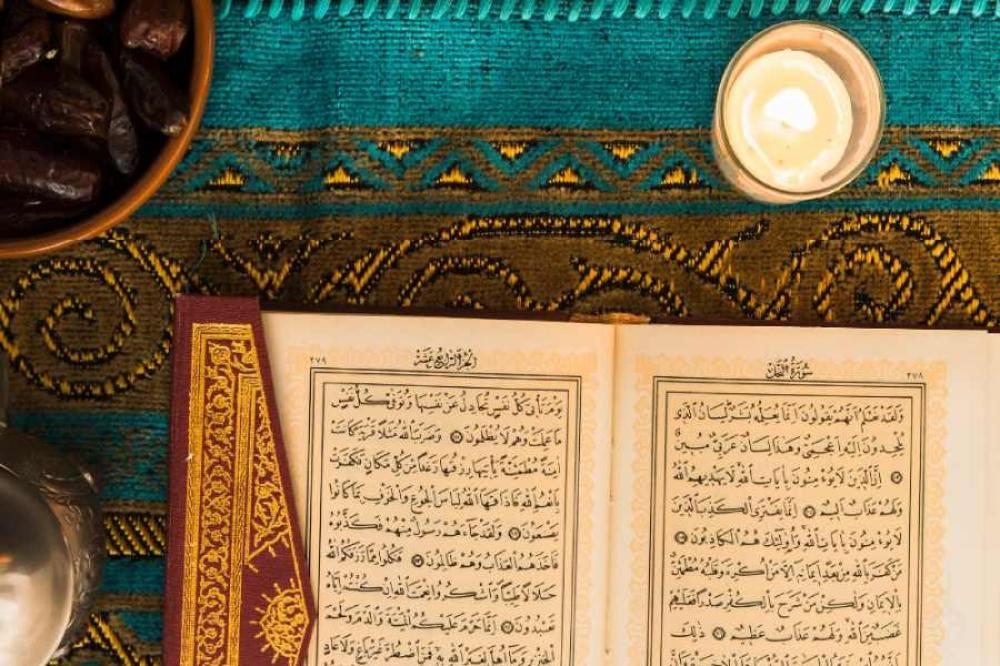 سُورَةُ النَّحْلِ ٢٧٨
وَلَقَدْ نَعْلَمُ أَنَّهُمْ يَقُولُونَ إِنَّمَا يُعَلِّمُهُ بَشَرٌ لِسَانُ الَّذِي
يُلْحِدُونَ إِلَيْهِ أَعْجَمِيٌّ وَهَذَا لِسَانٌ عَرَبِيٌّ مُبِينٌ
إِنَّ الَّذِينَ لَا يُؤْمِنُونَ بِآيَاتِ اللَّهِ لَا يَهْدِيهِمُ اللَّهُ
وَلَهُمْ عَذَابٌ أَلِيمٌ إِنَّمَا يَفْتَرِي الْكَذِبَ الَّذِينَ
لَا يُؤْمِنُونَ بِآيَاتِ اللَّهِ وَأُولَئِكَ هُمُ الْكَاذِبُونَ
مَنْ كَفَرَ بِاللَّهِ مِنْ بَعْدِ إِيمَانِهِ إِلَّا مَنْ أُكْرِهَ وَقَلْبُهُ مُطْمَئِنٌّ
بِالْإِيمَانِ وَلَكِنْ مَنْ شَرَحَ بِالْكُفْرِ صَدْرًا فَعَلَيْهِمْ
غَضَبٌ مِنَ اللَّهِ وَلَهُمْ عَذَابٌ عَظِيمٌ ذَلِكَ
الْجُزْءُ الرَّابِعُ عَشَرَ ٢٧٩
يَوْمَ تَأْتِي كُلُّ نَفْسٍ تُجَادِلُ عَنْ نَفْسِهَا وَتُوَفَّى كُلُّ نَفْسٍ
مَا عَمِلَتْ وَهُمْ لَا يُظْلَمُونَ وَضَرَبَ اللَّهُ مَثَلًا قَرْيَةً كَانَتْ
آمِنَةً مُطْمَئِنَّةً يَأْتِيهَا رِزْقُهَا رَغَدًا مِنْ كُلِّ مَكَانٍ فَكَفَرَتْ
بِأَنْعُمِ اللَّهِ فَأَذَاقَهَا اللَّهُ لِبَاسَ الْجُوعِ وَالْخَوْفِ بِمَا كَانُوا
يَصْنَعُونَ وَلَقَدْ جَاءَهُمْ رَسُولٌ مِنْهُمْ فَكَذَّبُوهُ
فَأَخَذَهُمُ الْعَذَابُ وَهُمْ ظَالِمُونَ فَكُلُوا مِمَّا رَزَقَكُمُ اللَّهُ
حَلَالًا طَيِّبًا وَاشْكُرُوا نِعْمَتَ اللَّهِ إِنْ كُنْتُمْ إِيَّاهُ
تَعْبُدُونَ إِنَّمَا حَرَّمَ عَلَيْكُمُ الْمَيْتَةَ وَالدَّمَ وَلَحْمَ
الْخِنْزِيرِ وَمَا أُهِلَّ لِغَيْرِ اللَّهِ بِهِ فَمَنِ اضْطُرَّ غَيْرَ بَاغٍ وَلَا عَادٍ